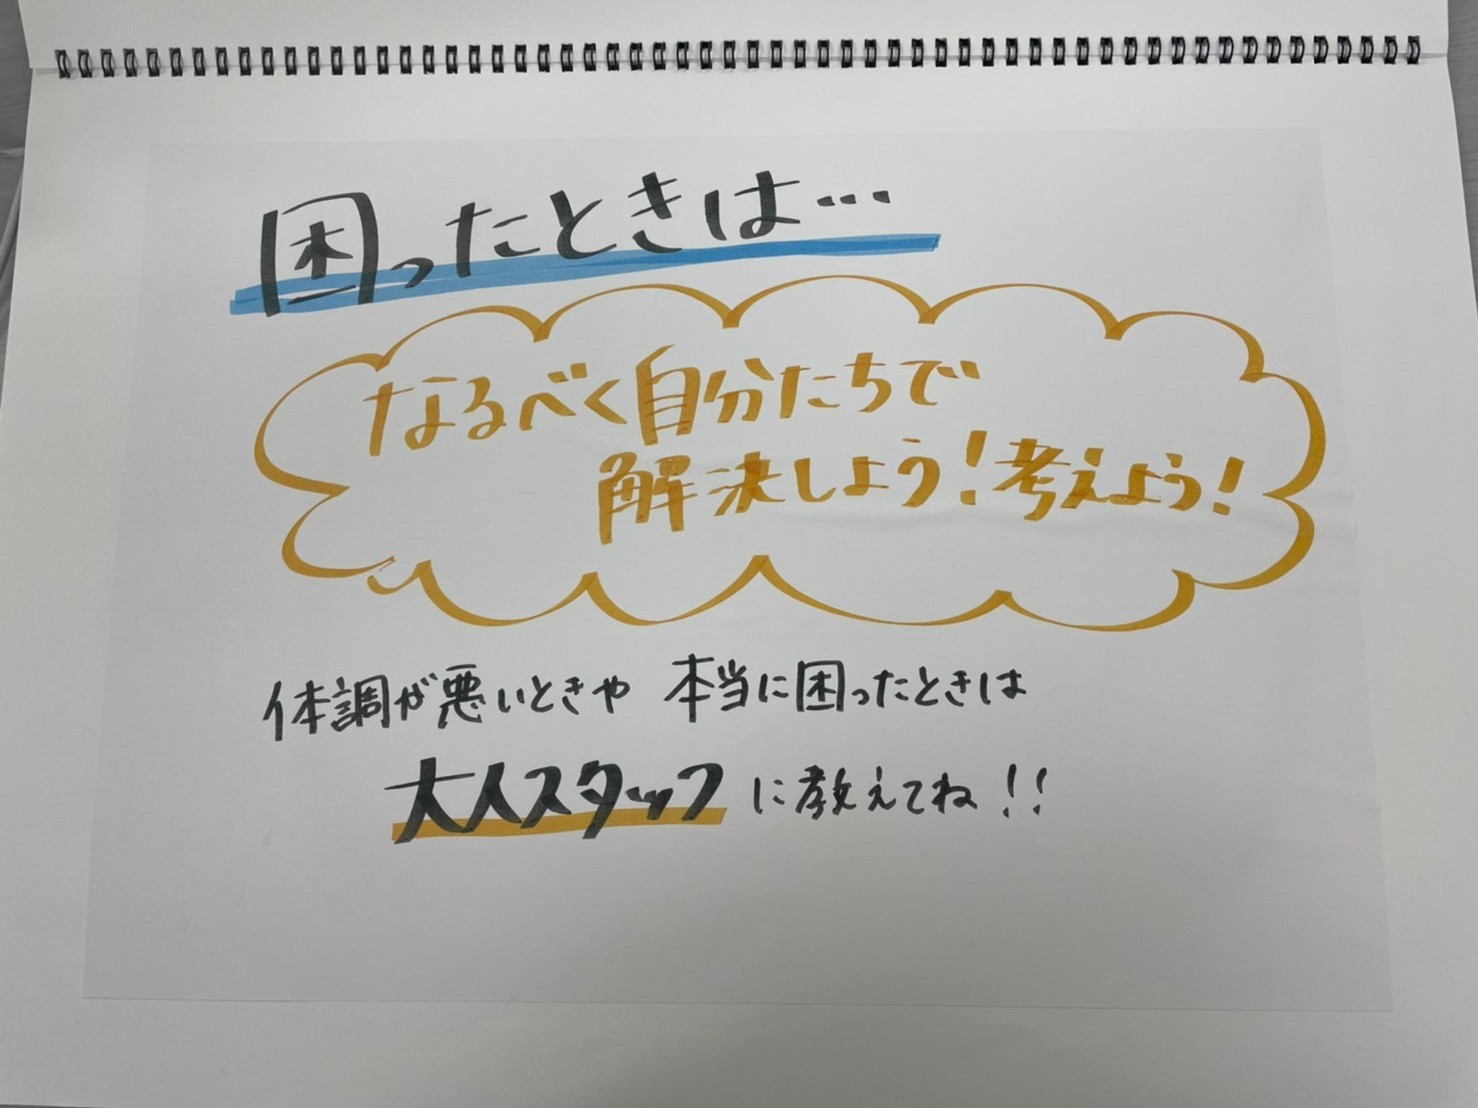 困ったときは…
なるべく自分たちで
解決しよう！考えよう！
体調が悪いときや 本当に困ったときは
大人スタッフに教えてね！！